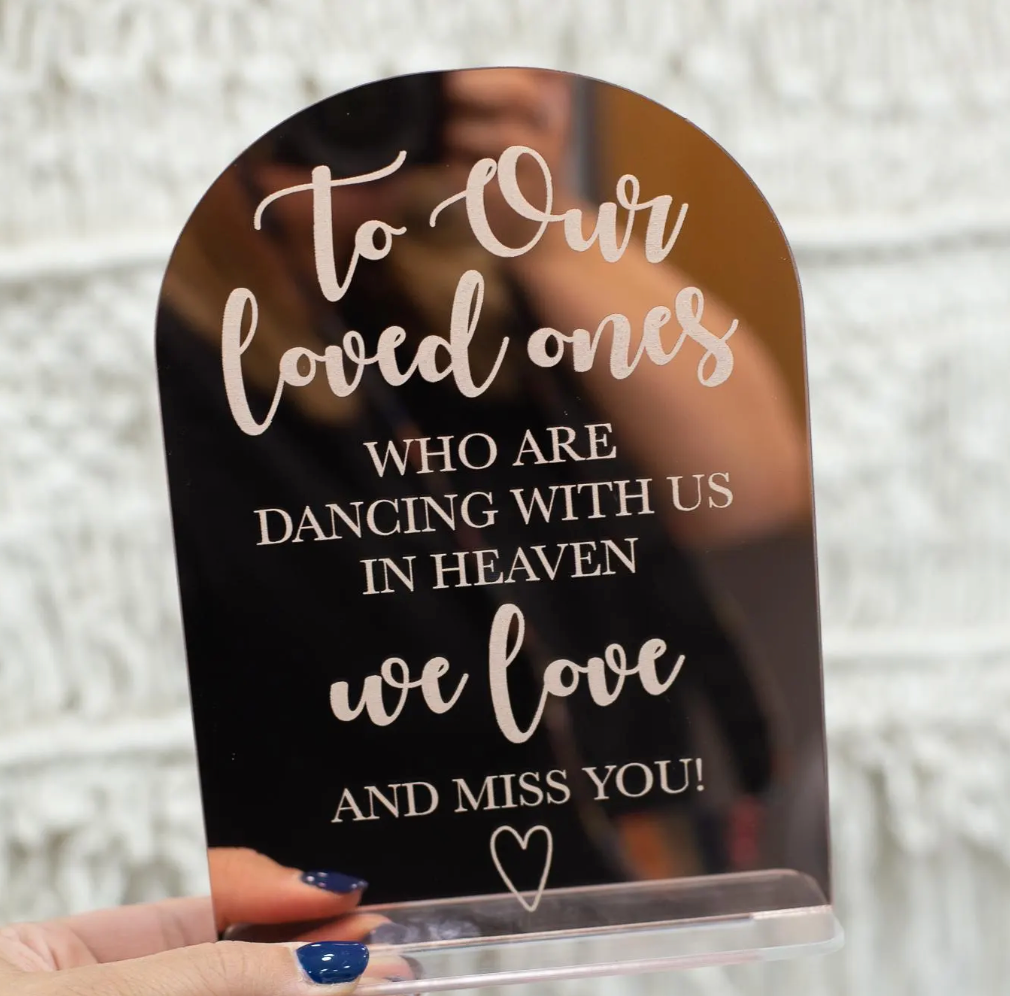 To Our
loved ones
WHO ARE
DANCING WITH US
IN HEAVEN
we love
AND MISS YOU!